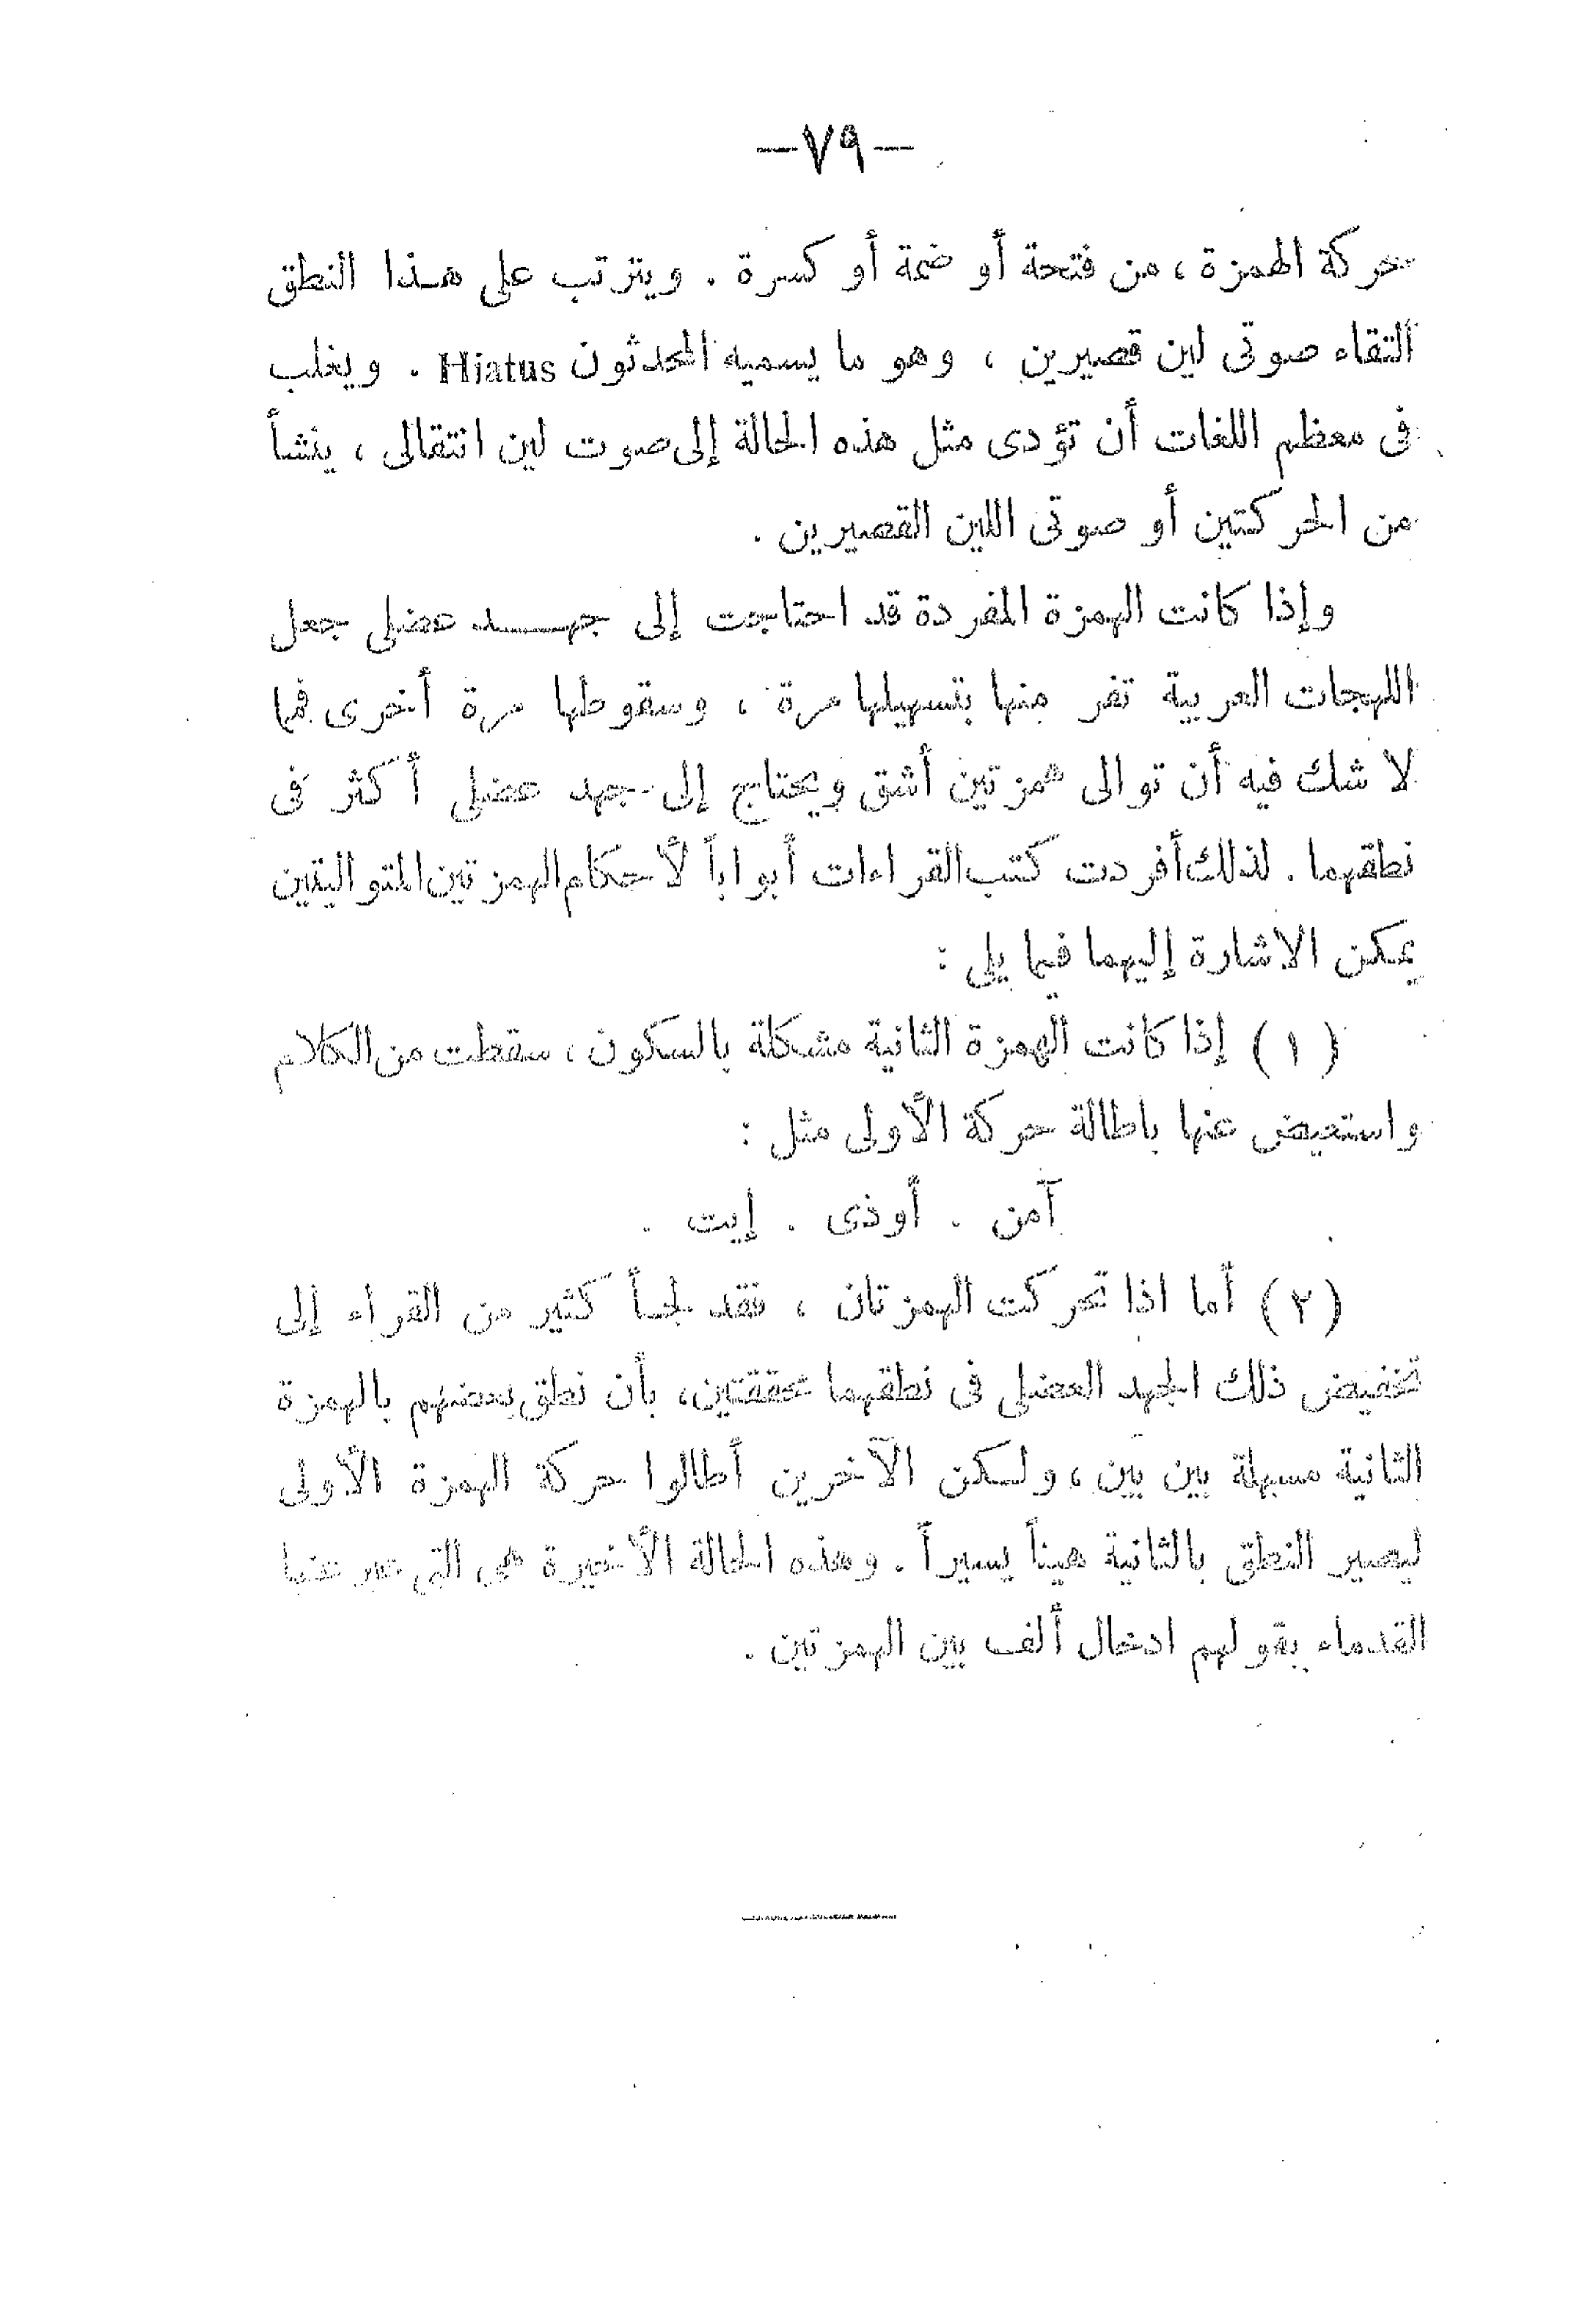 —٧٩—
حركة الهمزة ، من فتحة أو ضمة أو كسرة . ويترتب على هذا النطق
التقاء صوتى لين قصيرين ، وهو ما يسميه المحدثون Hiatus . ويغلب
فى معظم اللغات أن تؤدى مثل هذه الحالة إلى صوت لين انتقالى ، ينشأ
من الحركتين أو صوتى اللين القصيرين .
وإذا كانت الهمزة المفردة قد احتاجت إلى جهد عضلى جعل
اللهجات العربية تفر منها بتسهيلها مرة ، وسقوطها مرة أخرى فما
لا شك فيه أن توالى همزتين أشق ويحتاج إلى جهد عضلى أكثر فى
نطقهما . لذلك أفردت كتب القراءات أبواباً لأحكام الهمزتين المتواليتين
يمكن الاشارة إليهما فيما يلى :
( ١ ) إذا كانت الهمزة الثانية مشكلة بالسكون ، سقطت من الكلام
واستعيض عنها باطالة حركة الأولى مثل :
آمن . أوذى . إيت .
( ٢ ) أما اذا تحركت الهمزتان ، فقد لجأ كثير من القراء إلى
تخفيض ذلك الجهد العضلى فى نطقهما محققتين ، بأن نطق بعضهم بالهمزة
الثانية مسهلة بين بين ، ولكن الآخرين أطالوا حركة الهمزة الأولى
ليصير النطق بالثانية هيناً يسيراً . وهذه الحالة الأخيرة هى التى عبر عنها
القدماء بقولهم ادخال ألف بين الهمزتين .